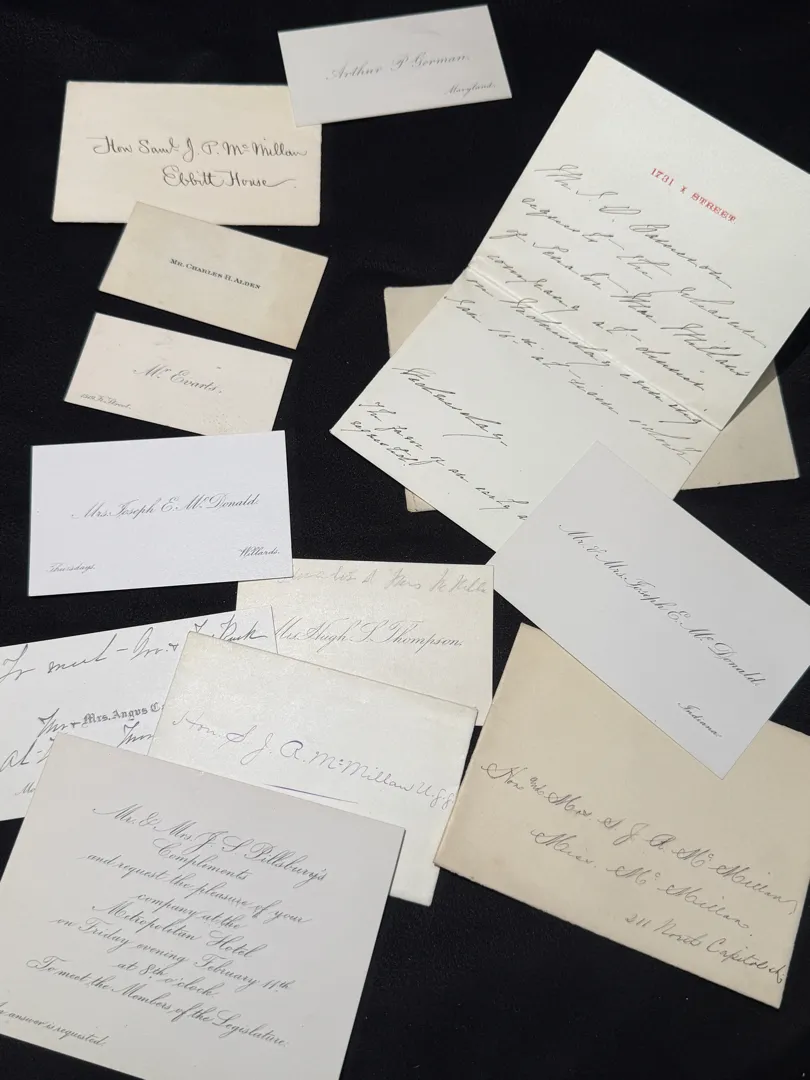 Arthur P Gorman.
Maryland.
Hon Saml J. P. McMillan
Ebbitt House.
Mr. Charles H. Alden
Mrs Evarts.
Street.
1731 I STREET
Mr. J. D. Cameron
requests the pleasure
of Senator McMillan's
company at dinner
on Wednesday evening
Jan 18th at seven o'clock
Wednesday
The favor of an early a
requested.
Mrs. Joseph E. McDonald.
Thursdays.
Willards.
Mrs McMilla
Mrs. Hugh S. Thompson.
To meet
Mrs. Angus Ca
Mr. & Mrs. Joseph E. McDonald.
Indiana.
Hon S J. R. McMillan U.S.S
Hon. and Mrs. S. J. R. McMillan,
Miss. McMillan.
211 North Capitol St.
Mr. & Mrs. J. S. Pillsbury's
Complements
and request the pleasure of your
company at the
Metropolitan Hotel
on Friday evening February 11th
at 8th o'clock.
To meet the Members of the Legislature.
An answer is requested.